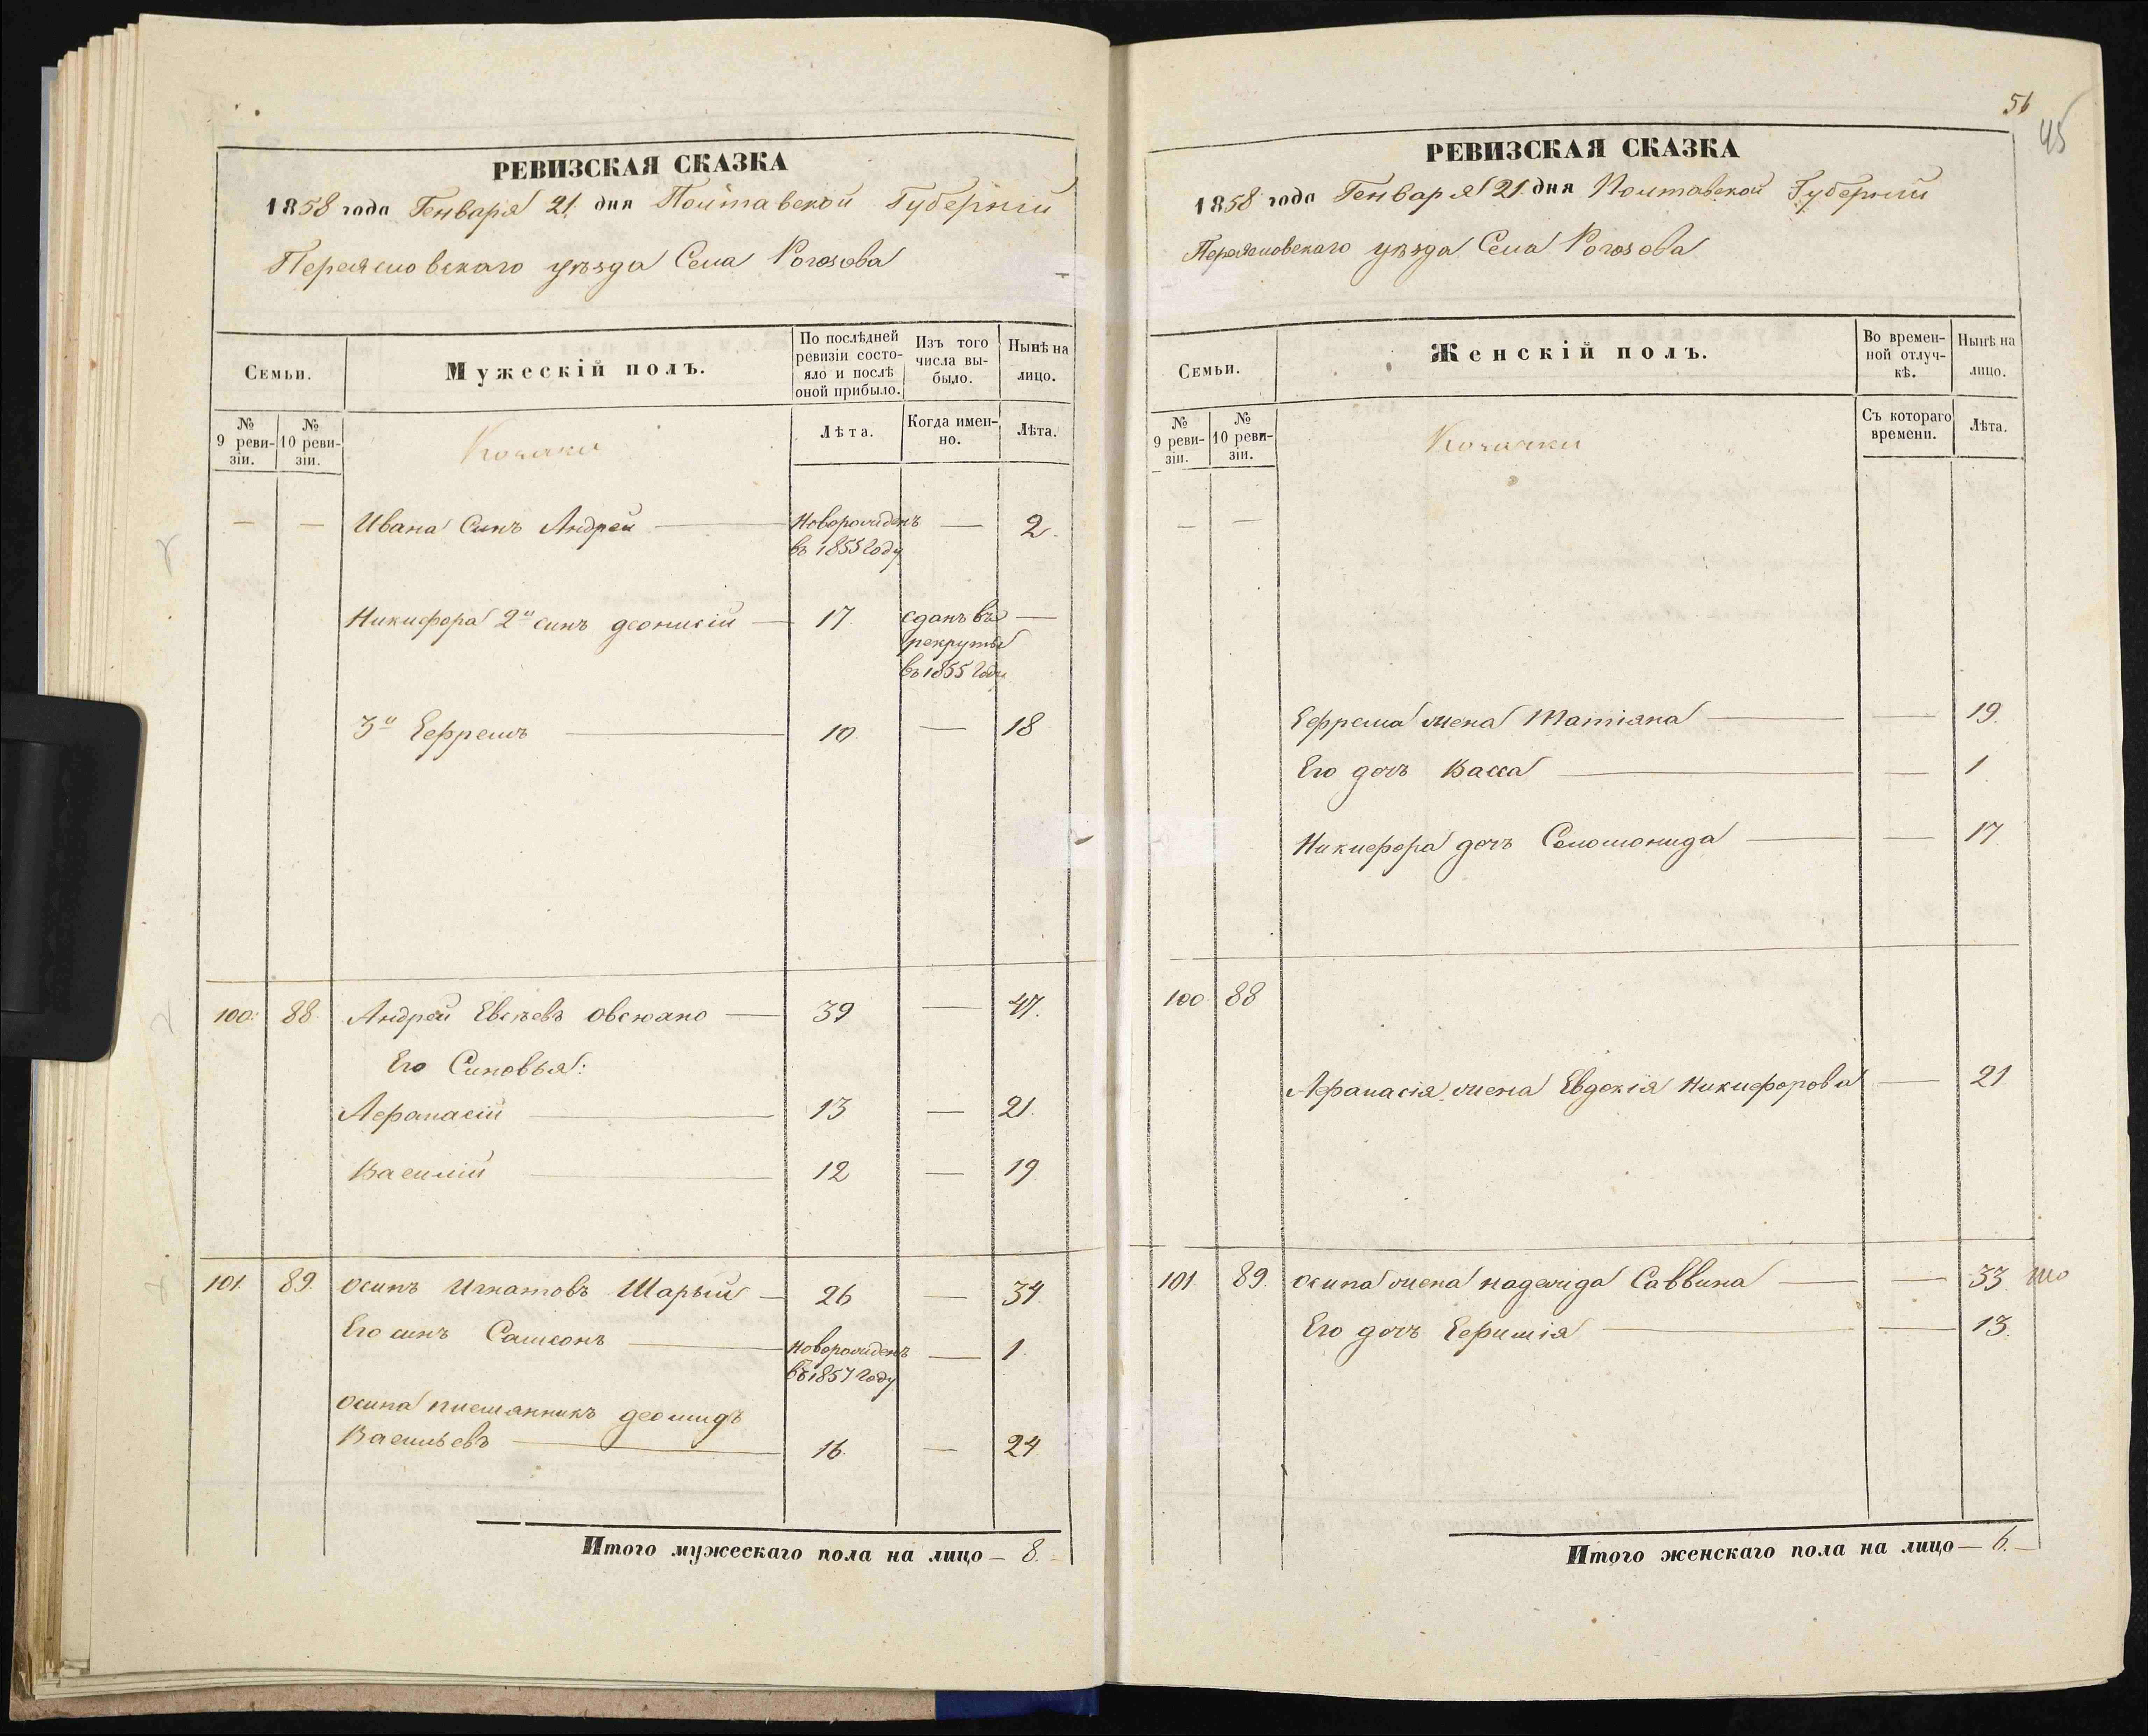 РЕВИЗСКАЯ СКАЗКА
1858 года Генваря 21. дня Полтавской Губерніи
Переясловскаго уѣзда Села Рогозова
Семьи.
Мужескій полъ.
По послѣдней ревизіи состояло и послѣ оной прибыло.
Изъ того числа выбыло.
Нынѣ на лицо.
№ 9 ревизіи.
№ 10 ревизіи.
Козаки
Лѣта.
Когда именно.
Лѣта.
— — Ивана Синъ Андрей — Новорожденъ — 2.
въ 1855 Году
Никифора 2й синъ деонисій — 17. сданъ въ —
рекруты
въ 1855 Году
3й Ефремъ — 10. — 18
100. 88. Андрей Евсѣевъ Овсюако — 39 — 47.
Его Синовья:
Афанасій — 13 — 21.
Василій — 12 — 19
101. 89. Осипъ Игнатовъ Шарый — 26 — 34.
Его синъ Самсонъ — Новорожденъ — 1.
въ 1857 Году
Осипа племянникъ деомидъ
Васильевъ — 16. — 24.
Итого мужескаго пола на лицо — 8. —
51
45
РЕВИЗСКАЯ СКАЗКА
1858 года Генваря 21. дня Полтавской Губерніи
Переясловскаго уѣзда Села Рогозова
Семьи.
Женскій полъ.
Во временной отлучкѣ.
Нынѣ на лицо.
№ 9 ревизіи.
№ 10 ревизіи.
Козачки
Съ котораго времени.
Лѣта.
— —
Ефрема жена Матіяна — — 19.
Его дочъ Васса — — 1.
Никифора дочъ Соломонида — — 17
100 88
Афанасія жена Евдокія Никифорова — 21
101. 89. Осипа жена надежда Саввина — — 33.
Его дочъ Ефимія — — 13.
Итого женскаго пола на лицо — 6. —